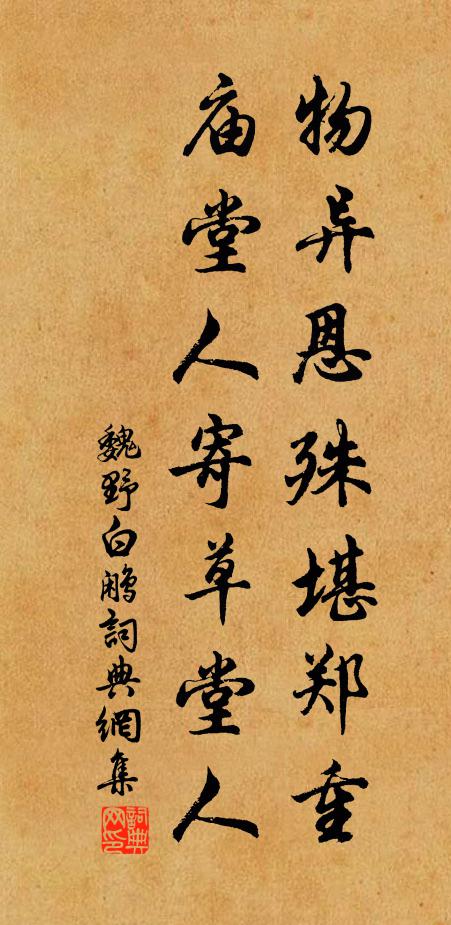 物异恩殊堪郑重
庙堂人寄草堂人
魏野白鹇詞典網集
詞典网印